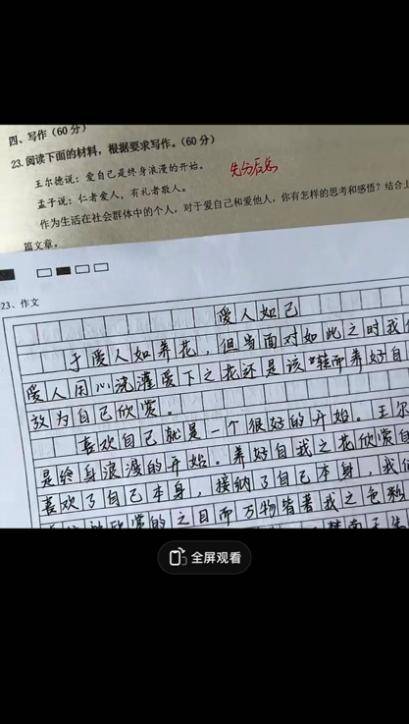 四、写作(60分)
23.阅读下面的材料，根据要求写作。(60分)
王尔德说：爱自己是终身浪漫的开始。
孟子说：仁者爱人，有礼者敬人。
作为生活在社会群体中的个人，对于爱自己和爱他人，你有怎样的思考和感悟？结合上
篇文章。
23、作文
爱人如己
于爱人如养花，但当面对如此之时我
爱人用心浇灌爱下之花还是该
而养好自
放为自己欣赏。
喜欢自己就是一个很好的开始。王尔
是终身浪漫的开始。养好自我之花欣赏自
喜欢了自己本身，接纳了自己本身，我们
欣赏的之目而万物皆著我之色
全屏观看